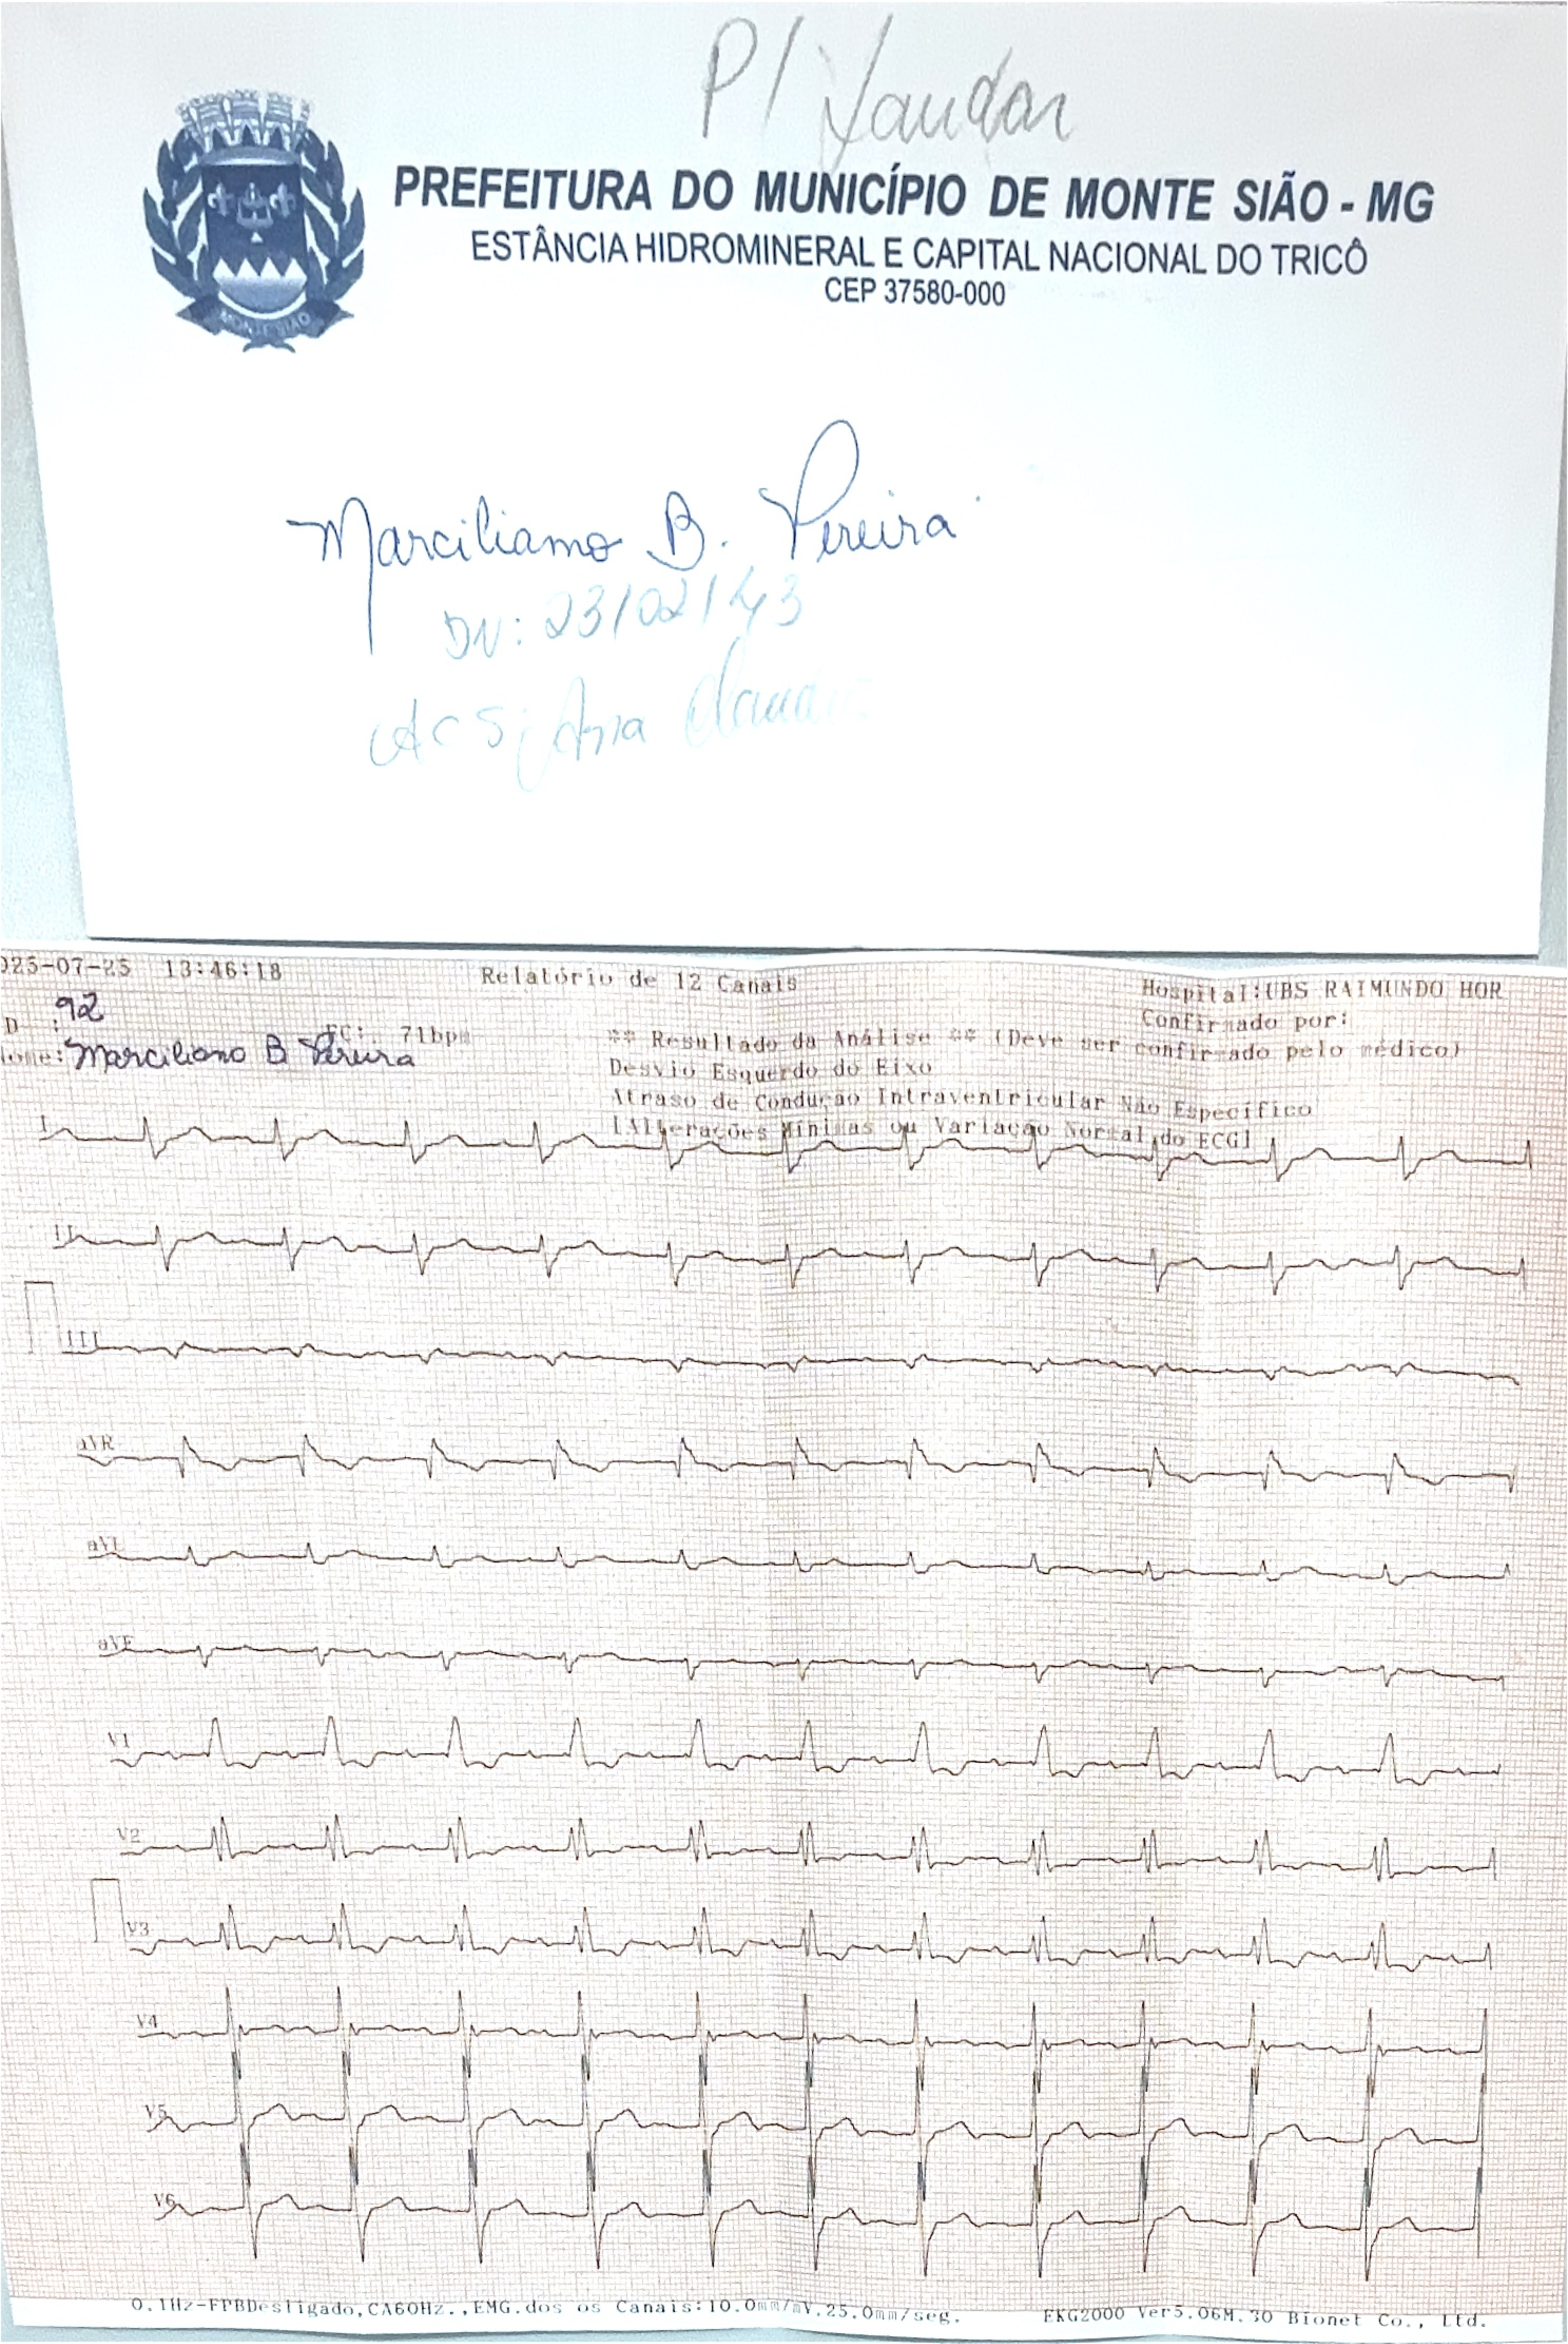 P/ Laudar
PREFEITURA DO MUNICÍPIO DE MONTE SIÃO - MG
ESTÂNCIA HIDROMINERAL E CAPITAL NACIONAL DO TRICÔ
CEP 37580-000
MONTE SIÃO
Marciliano B. Pereira
DN: 23/02/43
ACS: Ana
025-07-25 13:46:18 Relatório de 12 Canais Hospital:UBS RAIMUNDO HOR
Confirmado por:
D : 92
FC: 71bpm ** Resultado da Análise ** (Deve ser confirmado pelo médico)
ome: Marciliano B Pereira
Desvio Esquerdo do Eixo
Atraso de Condução Intraventricular Não Específico
[Alterações Mínimas ou Variação Normal do ECG]
I
II
III
aVR
aVL
aVF
V1
V2
V3
V4
V5
V6
0.1Hz-FPBDesligado,CA60Hz.,EMG.dos os Canais:10.0mm/mV.25.0mm/seg. EKG2000 Ver5.06M.30 Bionet Co., Ltd.